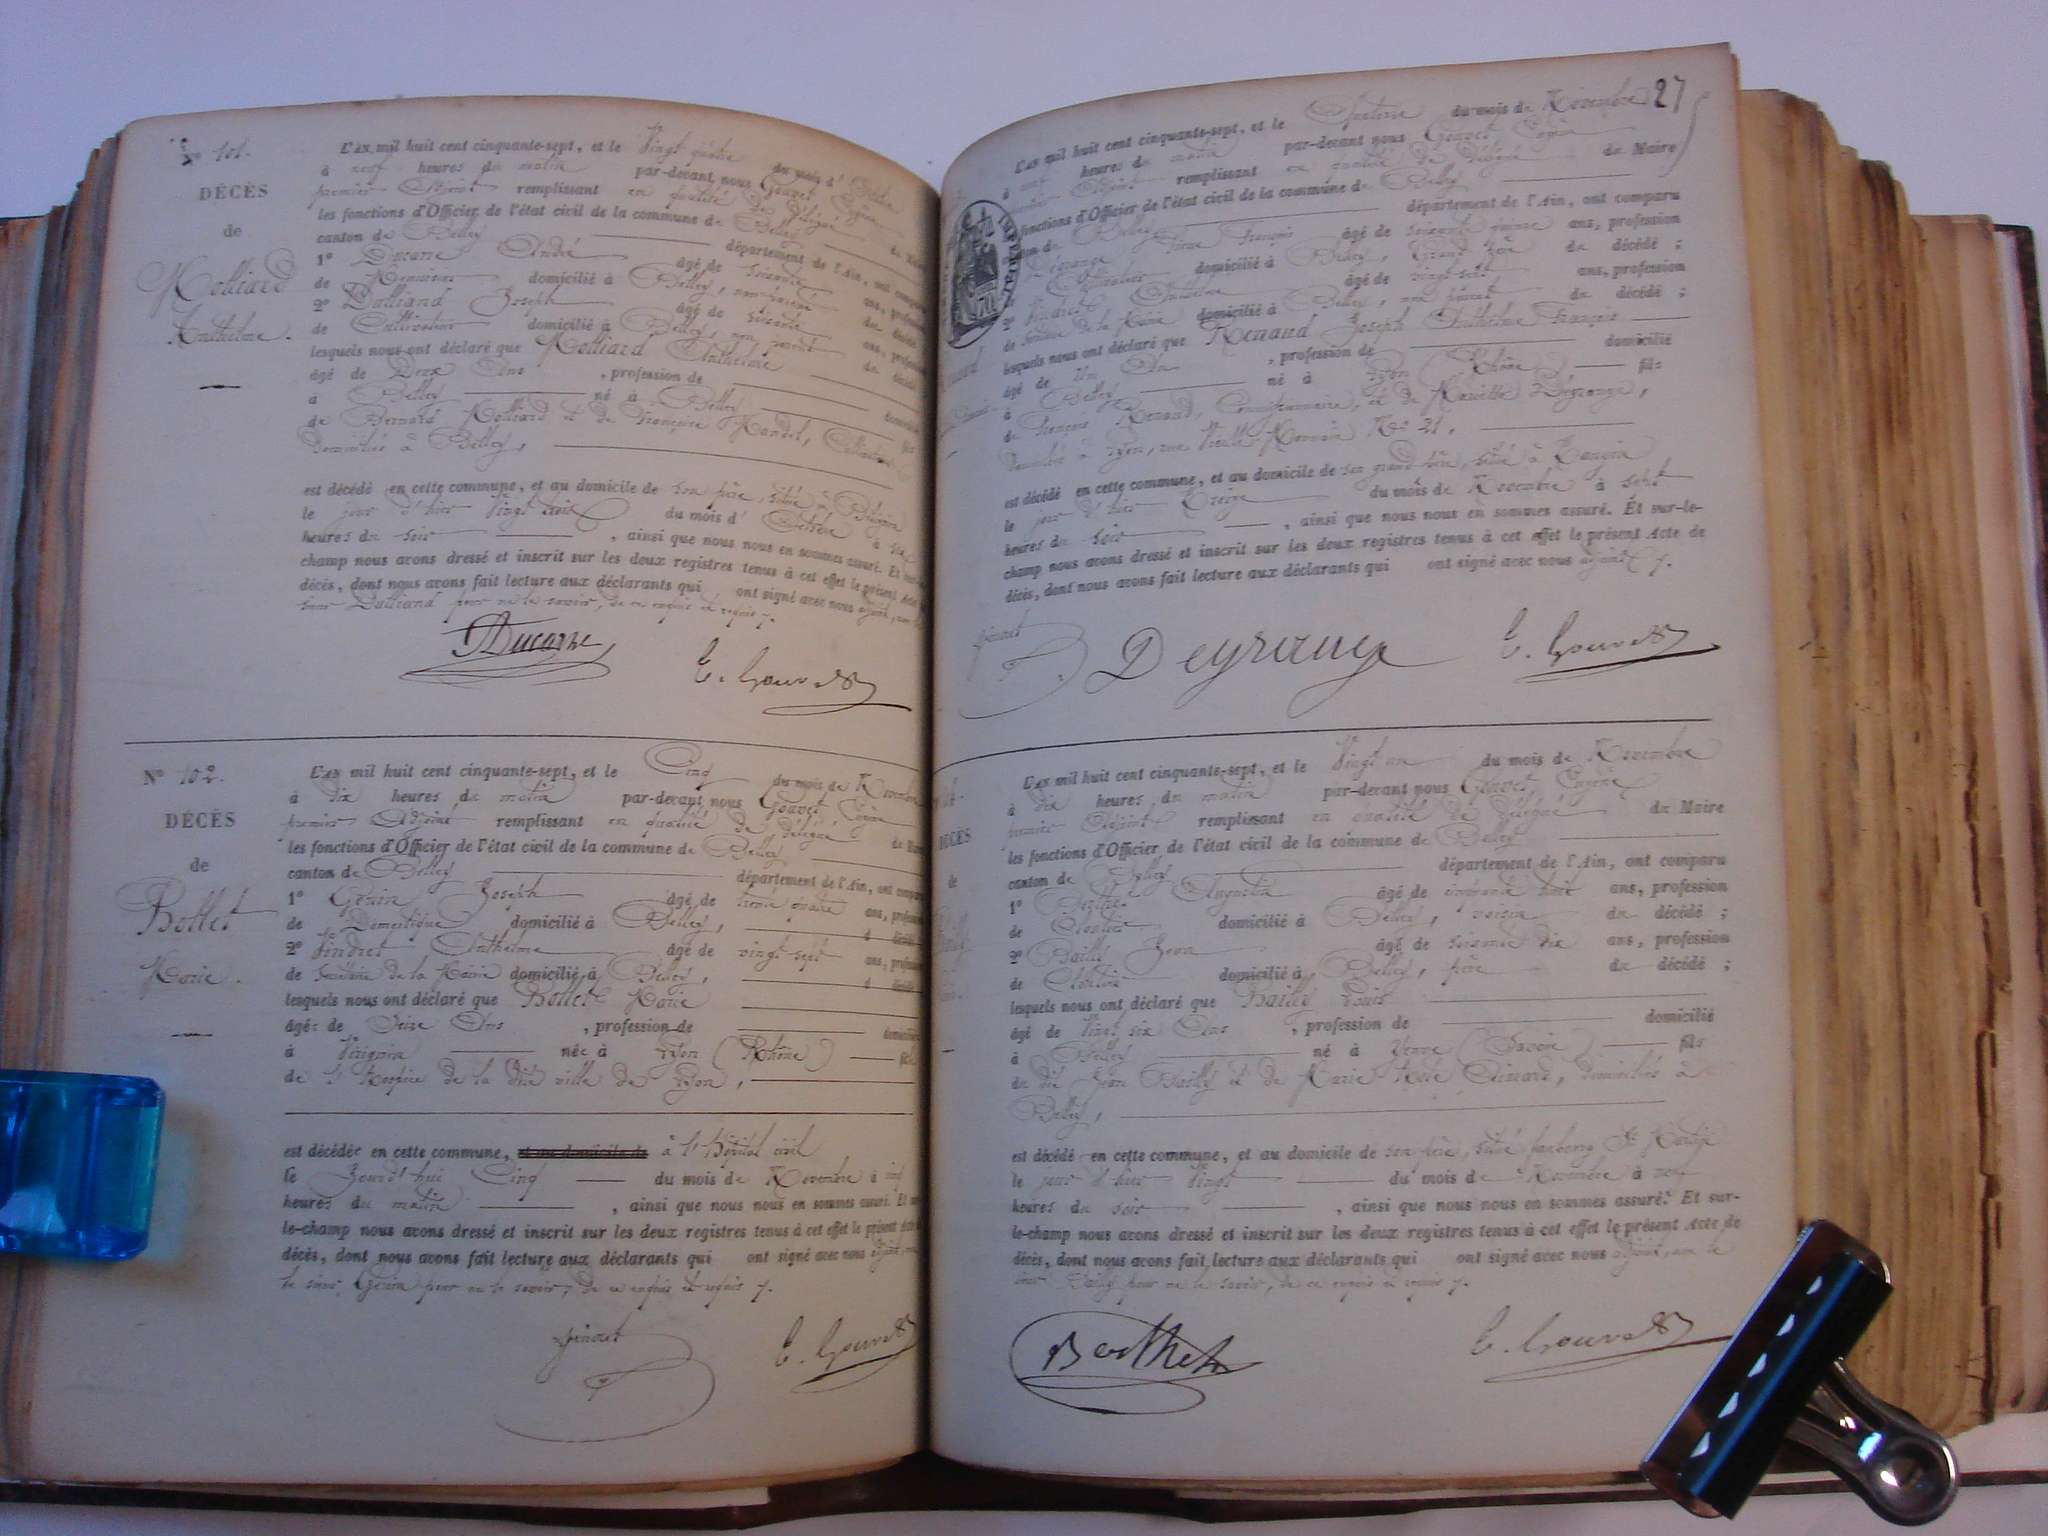 N° 101.
DÉCÈS
de
Molliard
Anthelme.
L'AN mil huit cent cinquante-sept, et le Vingt quatre du mois d'
à neuf heures du matin par-devant nous Gouvet Eugène
premier Adjoint remplissant en qualité de Délégué du
les fonctions d'Officier de l'état civil de la commune de Belley
canton de Belley département de l'Ain, ont
1° Ducarre André âgé de soixante ans,
de domicilié à Belley, non parent du décédé
2° Dalliand Joseph âgé de soixante ans,
de Cultivateur domicilié à Belley, non parent du décédé
lesquels nous ont déclaré que Molliard Anthelme
âgé de Deux Ans , profession de
à Belley né à Belley fils
de Bernard Molliard et de Françoise
domiciliés à Belley,
est décédé en cette commune, et au domicile de son père, situé à
le jour d'hier Vingt trois du mois d' Octobre à six
heures du soir , ainsi que nous nous en sommes assuré. Et
champ nous avons dressé et inscrit sur les deux registres tenus à cet effet le présent Acte
décès, dont nous avons fait lecture aux déclarants qui ont signé avec nous adjoint,
Dalliand pour ne le savoir, de ce enquis et requis
Ducarre
E. Gouvet
N° 102.
DÉCÈS
de
Bollet
Marie.
L'AN mil huit cent cinquante-sept, et le Cinq du mois de Novembre
à dix heures du matin par-devant nous Gouvet Eugène
premier Adjoint remplissant en qualité de Délégué du
les fonctions d'Officier de l'état civil de la commune de Belley
canton de Belley département de l'Ain, ont
1° Génin Joseph âgé de trente quatre ans,
de Domestique domicilié à Belley,
2° Anthelme âgé de vingt sept ans,
de Secrétaire de la Mairie domicilié à Belley,
lesquels nous ont déclaré que Bollet Marie
âgée de Seize Ans , profession de
à née à Lyon (Rhône)
de l'Hospice de la dite ville de Lyon,
est décédée en cette commune, et au domicile de à l'Hôpital civil
le Jourd'hui Cinq du mois de Novembre à
heures du matin , ainsi que nous nous en sommes assuré. Et
le-champ nous avons dressé et inscrit sur les deux registres tenus à cet effet le présent Acte
décès, dont nous avons fait lecture aux déclarants qui ont signé avec nous adjoint,
le sieur Génin pour ne le savoir, de ce enquis et requis
E. Gouvet
27
L'AN mil huit cent cinquante-sept, et le Quatorze du mois de Novembre
à neuf heures du matin par-devant nous Gouvet Eugène
Adjoint remplissant en qualité de Délégué du Maire
fonctions d'Officier de l'état civil de la commune de Belley
de Belley département de l'Ain, ont comparu
Pierre François âgé de soixante quinze ans, profession
domicilié à Belley, Grand Père du décédé ;
2° Anthelme âgé de vingt-sept ans, profession
de Secrétaire de la Mairie domicilié à Belley, non parent du décédé ;
lesquels nous ont déclaré que Renaud Joseph Anthelme François
âgé de Un An , profession de domicilié
à Belley né à Lyon (Rhône) fils
de François Renaud, Commissionnaire, et de
domiciliés à Lyon, rue Vieille Monnaie N° 21,
est décédé en cette commune, et au domicile de son grand père, situé à
le jour d'hier Treize du mois de Novembre à sept
heures du soir , ainsi que nous nous en sommes assuré. Et sur-le-
champ nous avons dressé et inscrit sur les deux registres tenus à cet effet le présent Acte de
décès, dont nous avons fait lecture aux déclarants qui ont signé avec nous adjoint
Degrange
E. Gouvet
DÉCÈS
de
L'AN mil huit cent cinquante-sept, et le Vingt un du mois de Novembre
à dix heures du matin par-devant nous Gouvet Eugène
premier Adjoint remplissant en qualité de Délégué du Maire
les fonctions d'Officier de l'état civil de la commune de Belley
canton de Belley département de l'Ain, ont comparu
1° Berthet Augustin âgé de cinquante huit ans, profession
de domicilié à Belley, voisin du décédé ;
2° Bailly Jean âgé de soixante dix ans, profession
de domicilié à Belley, père du décédé ;
lesquels nous ont déclaré que Bailly Louis
âgé de Vingt six Ans , profession de domicilié
à Belley né à Yenne (Savoie) fils
du dit Jean Bailly et de Marie domiciliés à
Belley,
est décédé en cette commune, et au domicile de son père, situé faubourg St Martin
le jour d'hier Vingt du mois de Novembre à neuf
heures du soir , ainsi que nous nous en sommes assuré. Et sur-
le-champ nous avons dressé et inscrit sur les deux registres tenus à cet effet le présent Acte de
décès, dont nous avons fait lecture aux déclarants qui ont signé avec nous adjoint, non le
sieur Bailly pour ne le savoir, de ce enquis et requis
Berthet
E. Gouvet